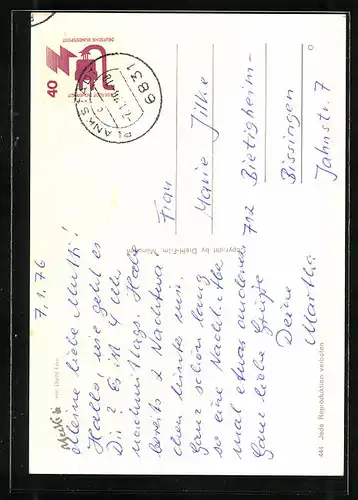 7.1.76
Meine liebe Mutti!
Hallo, wie geht es
Dir? Es ist 4 Uhr
nachmittags. Habe
bereits 2 Nachtwa
chen hinter mir.
Ganz schön lang
so eine Nacht. Abe
mal etwas anderes
Ganz liebe Grüße
Deine
Martha
Frau
Marie Jilke
712 Bietigheim-
Bissingen
Jahnstr. 7
40
DEUTSCHE BUNDESPOST
6831
PLANKSTADT
Copyright by Diehl-Film München
444 Jede Reproduktion verboten